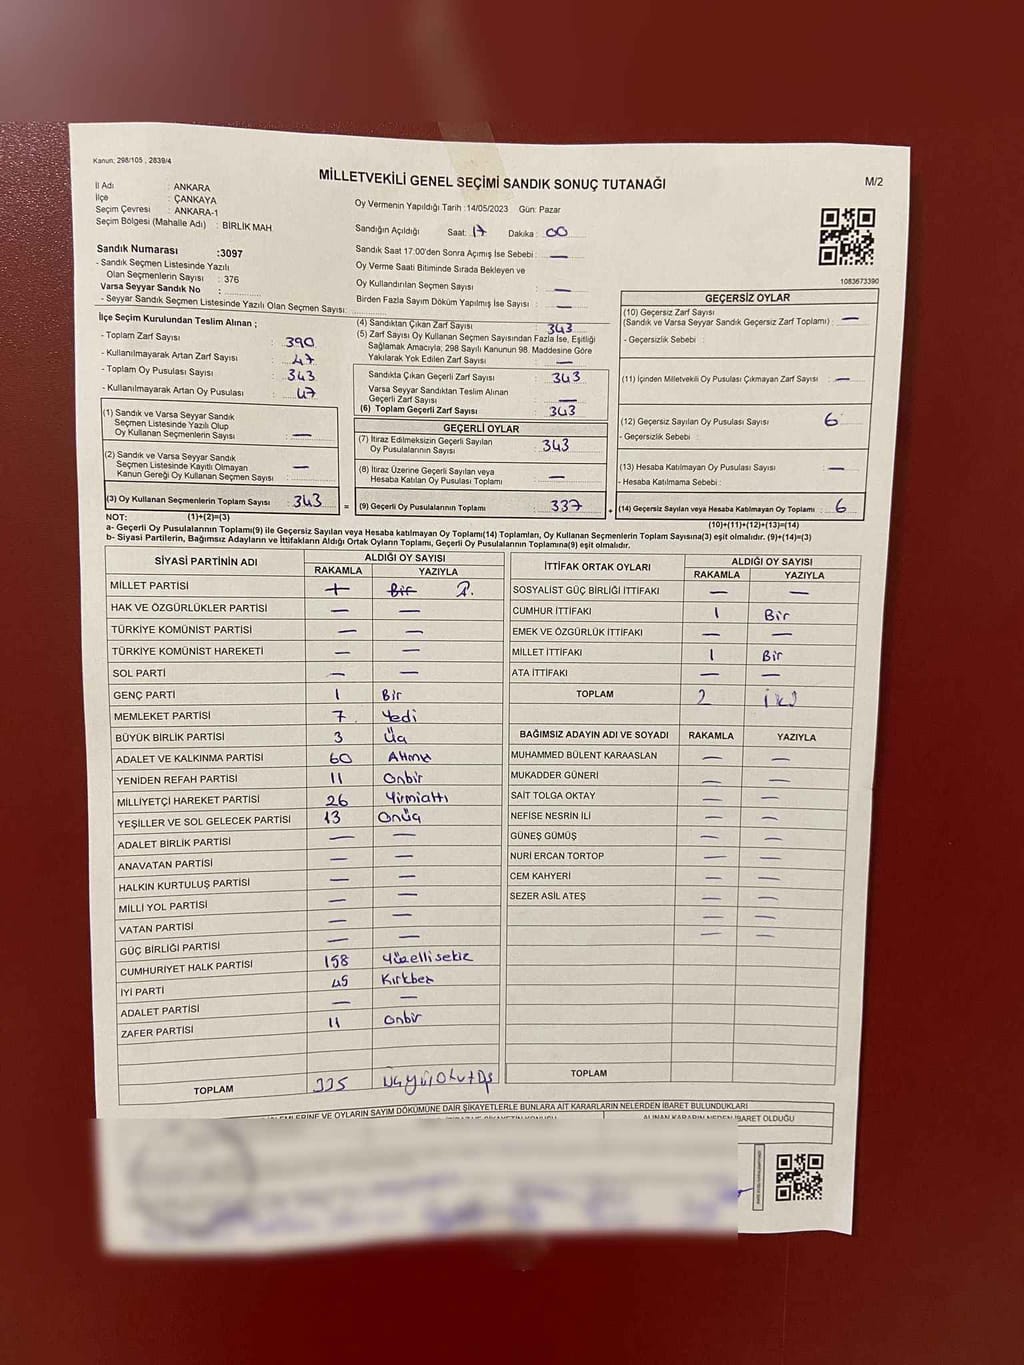 Kanun; 298/105 , 2839/4
MİLLETVEKİLİ GENEL SEÇİMİ SANDIK SONUÇ TUTANAĞI
M/2
İl Adı : ANKARA
İlçe : ÇANKAYA
Seçim Çevresi : ANKARA-1
Seçim Bölgesi (Mahalle Adı) : BİRLİK MAH
Oy Vermenin Yapıldığı Tarih :14/05/2023 Gün: Pazar
Sandığın Açıldığı Saat: 17 Dakika : 00
Sandık Numarası :3097
- Sandık Seçmen Listesinde Yazılı
Olan Seçmenlerin Sayısı : 376
Varsa Seyyar Sandık No :
- Seyyar Sandık Seçmen Listesinde Yazılı Olan Seçmen Sayısı:
Sandık Saat 17.00'den Sonra Açımış İse Sebebi : —
Oy Verme Saati Bitiminde Sırada Bekleyen ve
Oy Kullandırılan Seçmen Sayısı : —
Birden Fazla Sayım Döküm Yapılmış İse Sayısı : —
1083673390
İlçe Seçim Kurulundan Teslim Alınan ;
- Toplam Zarf Sayısı : 390
- Kullanılmayarak Artan Zarf Sayısı : 47
- Toplam Oy Pusulası Sayısı : 343
- Kullanılmayarak Artan Oy Pusulası : 47
(1) Sandık ve Varsa Seyyar Sandık
Seçmen Listesinde Yazılı Olup
Oy Kullanan Seçmenlerin Sayısı : —
(2) Sandık ve Varsa Seyyar Sandık
Seçmen Listesinde Kayıtlı Olmayan
Kanun Gereği Oy Kullanan Seçmen Sayısı : —
(3) Oy Kullanan Seçmenlerin Toplam Sayısı : 343
(4) Sandıktan Çıkan Zarf Sayısı : 343
(5) Zarf Sayısı Oy Kullanan Seçmen Sayısından Fazla İse, Eşitliği
Sağlamak Amacıyla; 298 Sayılı Kanunun 98. Maddesine Göre
Yakılarak Yok Edilen Zarf Sayısı : —
Sandıkta Çıkan Geçerli Zarf Sayısı : 343
Varsa Seyyar Sandıktan Teslim Alınan
Geçerli Zarf Sayısı : —
(6) Toplam Geçerli Zarf Sayısı : 343
GEÇERLİ OYLAR
(7) İtiraz Edilmeksizin Geçerli Sayılan
Oy Pusulalarının Sayısı : 343
(8) İtiraz Üzerine Geçerli Sayılan veya
Hesaba Katılan Oy Pusulası Toplamı : —
= (9) Geçerli Oy Pusulalarının Toplamı : 337
GEÇERSİZ OYLAR
(10) Geçersiz Zarf Sayısı
(Sandık ve Varsa Seyyar Sandık Geçersiz Zarf Toplamı) : —
- Geçersizlik Sebebi :
(11) İçinden Milletvekili Oy Pusulası Çıkmayan Zarf Sayısı : —
(12) Geçersiz Sayılan Oy Pusulası Sayısı : 6
- Geçersizlik Sebebi :
(13) Hesaba Katılmayan Oy Pusulası Sayısı : —
- Hesaba Katılmama Sebebi :
+ (14) Geçersiz Sayılan veya Hesaba Katılmayan Oy Toplamı : 6
NOT: (1)+(2)=(3)
(10)+(11)+(12)+(13)=(14)
a- Geçerli Oy Pusulalarının Toplamı(9) ile Geçersiz Sayılan veya Hesaba katılmayan Oy Toplamı(14) Toplamları, Oy Kullanan Seçmenlerin Toplam Sayısına(3) eşit olmalıdır. (9)+(14)=(3)
b- Siyasi Partilerin, Bağımsız Adayların ve İttifakların Aldığı Ortak Oyların Toplamı, Geçerli Oy Pusulalarının Toplamına(9) eşit olmalıdır.
SİYASİ PARTİNİN ADI ALDIĞI OY SAYISI
RAKAMLA YAZIYLA
MİLLET PARTİSİ Bir
HAK VE ÖZGÜRLÜKLER PARTİSİ — —
TÜRKİYE KOMÜNİST PARTİSİ — —
TÜRKİYE KOMÜNİST HAREKETİ — —
SOL PARTİ — —
GENÇ PARTİ 1 Bir
MEMLEKET PARTİSİ 7 Yedi
BÜYÜK BİRLİK PARTİSİ 3 Üç
ADALET VE KALKINMA PARTİSİ 60 Altmış
YENİDEN REFAH PARTİSİ 11 Onbir
MİLLİYETÇİ HAREKET PARTİSİ 26 Yirmialtı
YEŞİLLER VE SOL GELECEK PARTİSİ 13 Onüç
ADALET BİRLİK PARTİSİ — —
ANAVATAN PARTİSİ — —
HALKIN KURTULUŞ PARTİSİ — —
MİLLİ YOL PARTİSİ — —
VATAN PARTİSİ — —
GÜÇ BİRLİĞİ PARTİSİ — —
CUMHURİYET HALK PARTİSİ 158 Yüzellisekiz
İYİ PARTİ 45 Kırkbeş
ADALET PARTİSİ — —
ZAFER PARTİSİ 11 Onbir
TOPLAM 335 Üçyüzotuzbeş
İTTİFAK ORTAK OYLARI ALDIĞI OY SAYISI
RAKAMLA YAZIYLA
SOSYALİST GÜÇ BİRLİĞİ İTTİFAKI — —
CUMHUR İTTİFAKI 1 Bir
EMEK VE ÖZGÜRLÜK İTTİFAKI — —
MİLLET İTTİFAKI 1 Bir
ATA İTTİFAKI — —
TOPLAM 2 İki
BAĞIMSIZ ADAYIN ADI VE SOYADI RAKAMLA YAZIYLA
MUHAMMED BÜLENT KARAASLAN — —
MUKADDER GÜNERİ — —
SAİT TOLGA OKTAY — —
NEFİSE NESRİN İLİ — —
GÜNEŞ GÜMÜŞ — —
NURİ ERCAN TORTOP — —
CEM KAHYERİ — —
SEZER ASİL ATEŞ — —
— —
— —
TOPLAM
İŞLEMLERİNE VE OYLARIN SAYIM DÖKÜMÜNE DAİR ŞİKAYETLERLE BUNLARA AİT KARARLARIN NELERDEN İBARET BULUNDUKLARI
ALINAN KARARIN NEDEN İBARET OLDUĞU